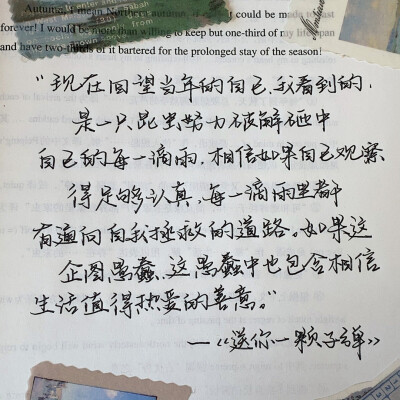 Autumn! I mean Northern autumn, if it could be made to last
forever! I would be more than willing to keep but one-third of my life span
and have two-thirds of it bartered for the prolonged stay of the season!
“现在回望当年的自己，我看到的，
是一只昆虫努力破解砸中
自己的每一滴雨，相信如果自己观察
得足够认真，每一滴雨里都
有通向自我拯救的道路。如果这
企图愚蠢，这愚蠢中也包含相信
生活值得热爱的善意。”
—《送你一颗子弹》